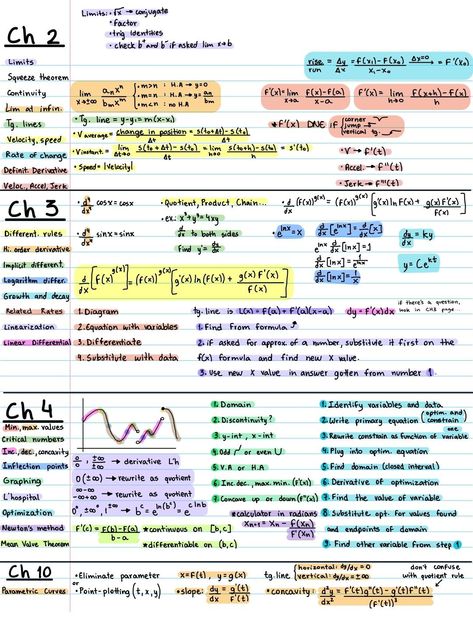 Ch 2
Limits
Squeeze theorem
Continuity
Lim at infin.
Tg. lines
Velocity, speed
Rate of change
Definit. Derivative
Veloc., Accel, Jerk
Limits: • √x → conjugate
• Factor
• trig identities
• check b⁺ and b⁻ if asked lim x→b
rise/run = Δy/Δx = f(x₁) - f(x₀) / x₁ - x₀ Δx→0 = f'(x₀)
lim x→±∞ aₙxⁿ / bₘxᵐ
• m>n : H.A → y=0
• m=n : H.A → y = aₙ/bₘ
• m<n : no H.A
f'(x) = lim x→a f(x)-f(a) / x-a
f'(x) = lim h→0 f(x+h) - f(x) / h
• Tg. line = y-y₁ = m(x-x₁)
• V average = change in position / Δt = s(t₀+Δt) - s(t₀) / Δt
• V instant. = lim Δt→0 s(t₀+Δt) - s(t₀) / Δt = lim h→0 s(t₀+h) - s(t₀) / h = s'(t₀)
• Speed = |velocity|
* f'(x) DNE if
corner
jump
vertical tg.
• V → f'(t)
• Accel. → f''(t)
• Jerk → f'''(t)
Ch 3
Different. rules
Hi. order derivative
Implicit different.
Logarithm differ.
Growth and decay
Related Rates
Linearization
Linear Differential
• d⁴/dx⁴ cosx = cosx
• d⁴/dx⁴ sinx = sinx
• Quotient, Product, Chain...
• ex: x³+y³=4xy
d/dx to both sides
Find y' = dy/dx
• d/dx (f(x))^g(x) = (f(x))^g(x) [g'(x) ln f(x) + g(x) f'(x) / f(x)]
d/dx [f(x)^g(x)] = (f(x))^g(x) [g'(x) ln(f(x)) + g(x) f'(x) / f(x)]
• e^lnx = x
d/dx [e^lnx] = d/dx [x]
e^lnx d/dx [lnx] = 1
d/dx [lnx] = 1/e^lnx
d/dx [lnx] = 1/x
dy/dx = ky
y = Ce^kt
1. Diagram
2. Equation with variables
3. Differentiate
4. Substitute with data
tg. line is L(x) = f(a) + f'(a)(x-a)
dy = f'(x)dx
if there's a question, look in CH3 page.
1. Find From formula
2. if asked for approx of a number, substitute it first on the
f(x) formula and find new x value.
3. Use new x value in answer gotten from number 1.
Ch 4
Min, max. values
Critical numbers
Inc, dec, concavity
Inflection points
Graphing
L'hospital
Optimization
Newton's method
Mean Value Theorem
0/0, ±∞/±∞ → derivative L'h
0(±∞) → rewrite as quotient
∞-∞ → rewrite as quotient
0⁰, ±∞⁰, 1^±∞ → bᶜ = e^ln(bᶜ) = e^c lnb
f'(c) = f(b)-f(a) / b-a
*continuous on [b,c]
*differentiable on (b,c)
1. Domain
2. Discontinuity?
3. y-int, x-int
4. Odd or even
5. V.A or H.A
6. Inc, dec., max. min. (f'(x))
7. Concave up or down (f''(x))
*calculator in radians
Xₙ₊₁ = Xₙ - f(Xₙ) / f'(Xₙ)
1. Identify variables and data
2. Write primary equation (optim. and constrain one)
3. Rewrite constrain as function of variable
4. Plug into optim. equation
5. Find domain (closed interval)
6. Derivative of optimization
7. Find the value of variable
8. Substitute opt. for values found
and endpoints of domain
9. Find other variable from step 1
Ch 10
Parametric Curves
• Eliminate parameter
or
• Point-plotting (t, x, y)
x = f(t), y = g(x)
• slope: dy/dx = g'(t) / f'(t)
tg. line
horizontal: dy/dx = 0
vertical: dy/dx = ±∞
don't confuse with quotient rule
• concavity: d²y/dx² = f'(t)g''(t) - g'(t)f''(t) / (f'(t))³